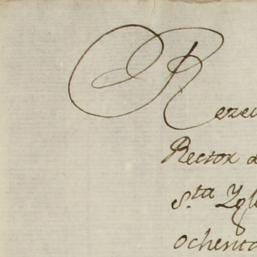 Rezev
Rector d
S.ta Ygle
ochenta